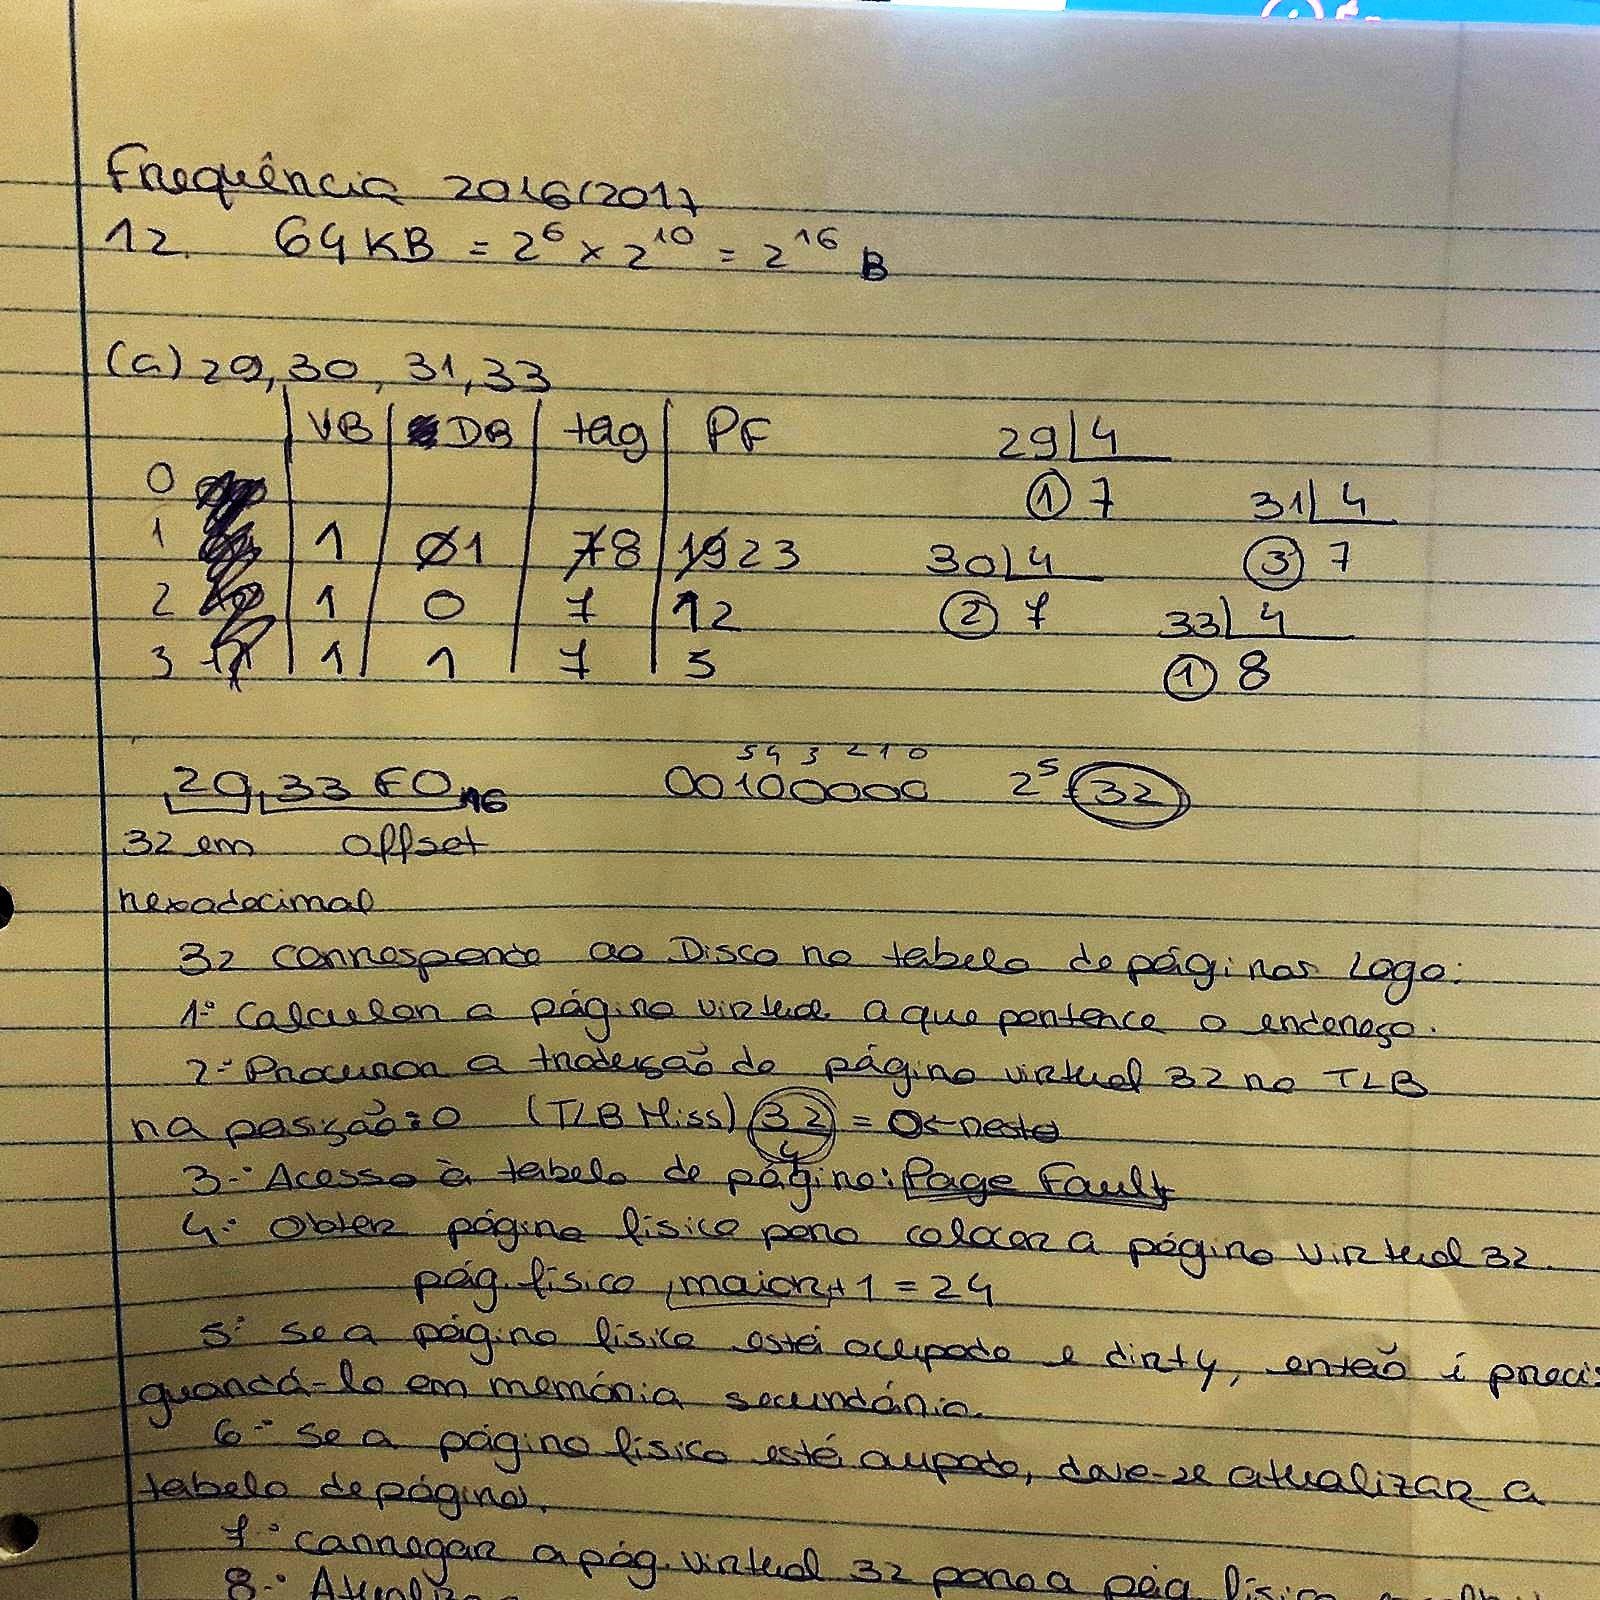 Frequência 2016/2017
12. 64KB = 2^6 x 2^10 = 2^16 B
(a) 29, 30, 31, 33
VB DB tag PF
29 4
0
1 7
31 4
1 1 0 1 7 8 19 23
30 4
3 7
2 1 0 7 12
2 7
33 4
3 1 1 7 5
1 8
5 4 3 2 1 0
20,33 F0 16 00100000 2^5 = 32
32 em offset
hexadecimal
32 corresponde ao Disco na tabela de páginas. Logo:
1º Calcular a página virtual a que pertence o endereço.
2º Procurar a tradução da página virtual 32 no TLB
na posição: 0 (TLB Miss) 32/4 = 0 ← resto
3º Acesso à tabela de página: Page Fault
4º Obter página física para colocar a página virtual 32.
pág. física, maior + 1 = 24
5º se a página física está ocupada e dirty, então é preci
guardá-la em memória secundária.
6º se a página física está ocupada, deve-se atualizar a
tabela de páginas.
7º carregar a pág. virtual 32 para a pág. física
8º